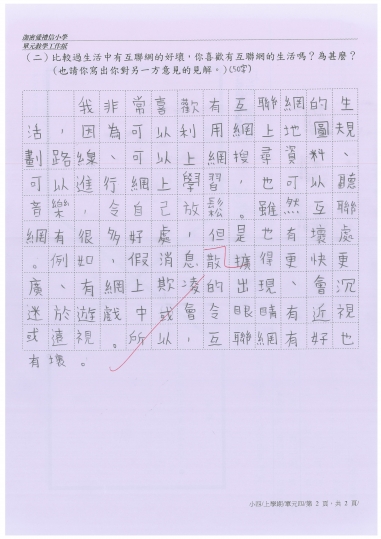 潮密愛禮信小學
單元教學工作紙
(二) 比較過生活中有互聯網的好壞,你喜歡有互聯網的生活嗎?為甚麼?
(也請你寫出你對另一方意見的見解。) (50字)
我非常喜歡有互聯網的生
活,因為可以利用網上地圖規
劃路線、可以上網搜尋資料、
可以進行網上學習,也可以聽
音樂,令自己放鬆。雖然互聯
網有很多好處,但是也有壞處
。例如、假消息散擴得更快更
廣、有網上欺凌的出現、會沉
迷於遊戲中或會令眼睛有近視
或遠視。所以,互聯網有好也
有壞。
小四/上學期/單元四/第 2 頁,共 2 頁/